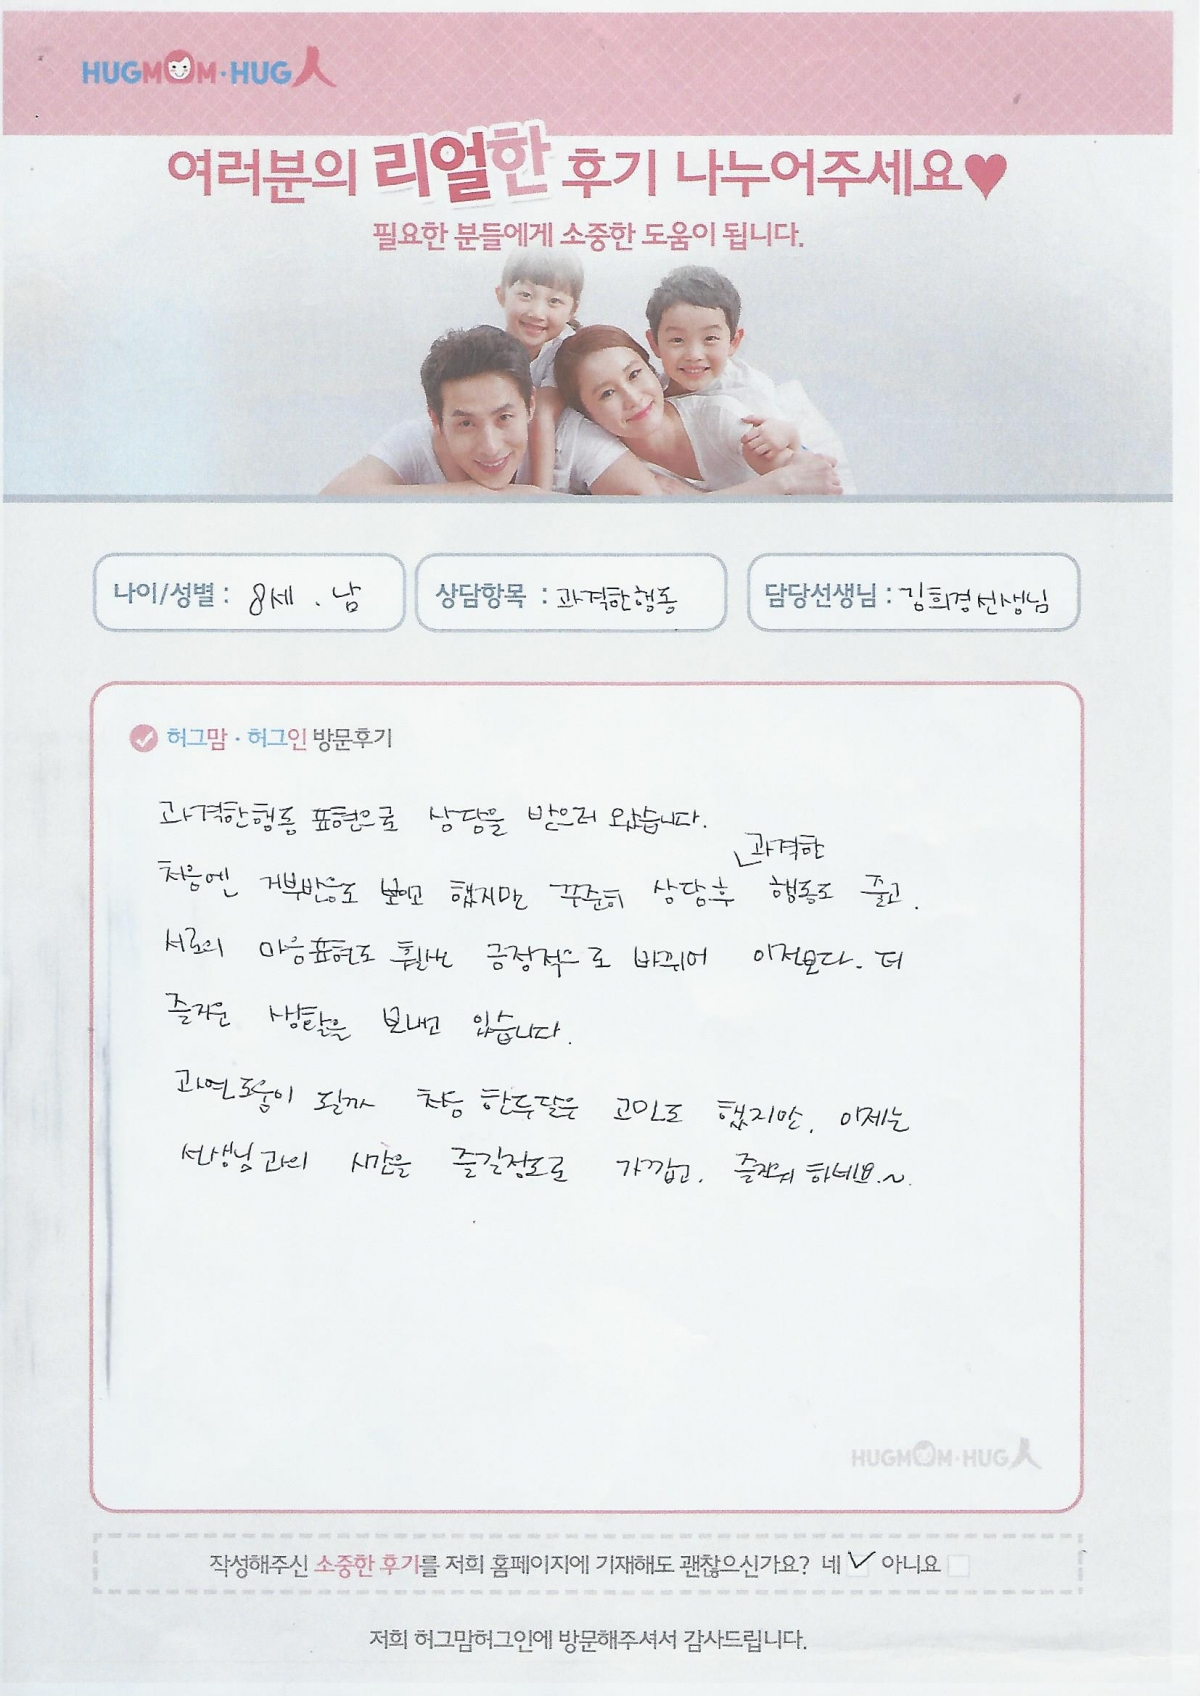 HUGMOM·HUG人
여러분의 리얼한 후기 나누어주세요♥
필요한 분들에게 소중한 도움이 됩니다.
나이/성별 : 8세 . 남
상담항목 : 과격한행동
담당선생님 : 김희경선생님
허그맘 · 허그인 방문후기
과격한행동 표현으로 상담을 받으러 왔습니다.
과격한
처음엔 거부반응도 보이고 했지만 꾸준히 상담후 행동도 줄고.
서로의 마음표현도 훨씬 긍정적으로 바뀌어 이전보다. 더
즐거운 생활을 보내고 있습니다.
과연도움이 될까 처음 한두달은 고민도 했지만, 이제는
선생님과의 시간을 즐길정도로 가깝고. 즐거워 하네요.~
HUGMOM·HUG人
작성해주신 소중한 후기를 저희 홈페이지에 기재해도 괜찮으신가요? 네 ✓ 아니요
저희 허그맘허그인에 방문해주셔서 감사드립니다.